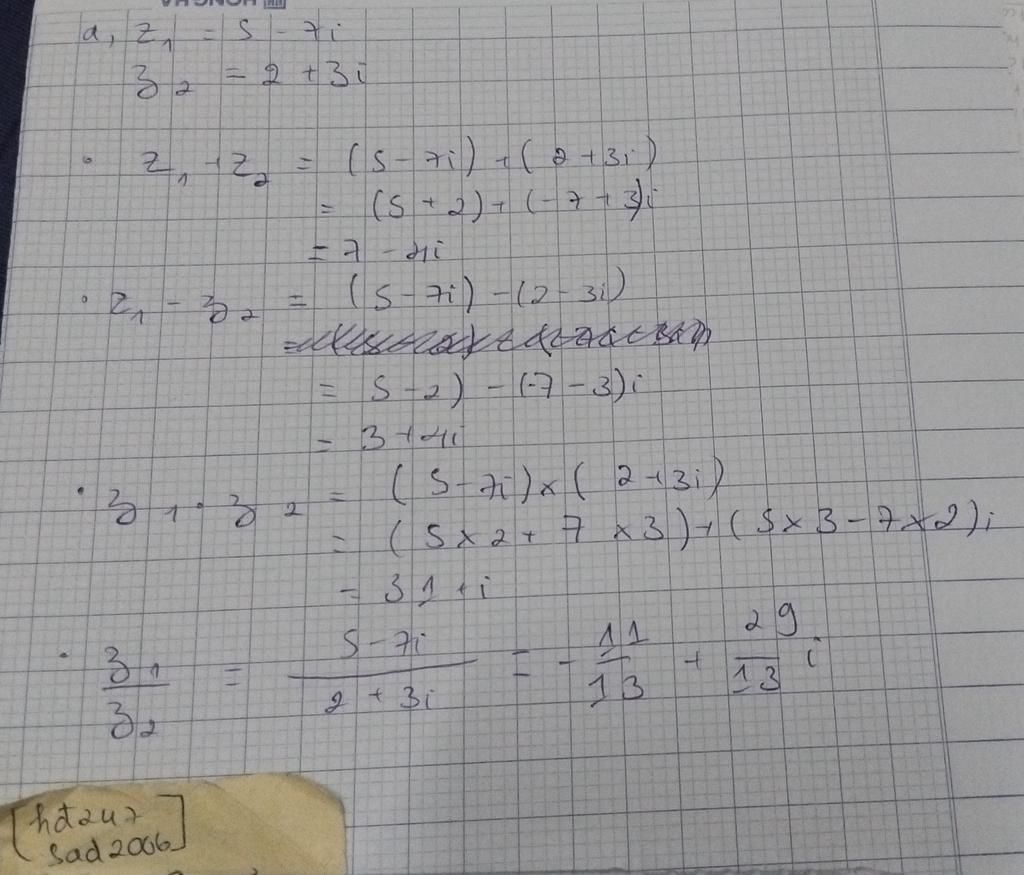 HONG HA
a, z₁ = 5 - 7i
z₂ = 2 + 3i
• z₁ + z₂ = (5 - 7i) + (2 + 3i)
= (5 + 2) + (-7 + 3)i
= 7 - 4i
• z₁ - z₂ = (5 - 7i) - (2 - 3i)
= 5 - 2) - (-7 - 3)i
= 3 + 4i
• z₁ . z₂ = (5 - 7i) × (2 + 3i)
= (5 × 2 + 7 × 3) + (5 × 3 - 7 × 2)i
= 31 + i
• z₁/z₂ = (5 - 7i)/(2 + 3i) = - 11/13 + 29/13 i
[hđ247
sad2006]